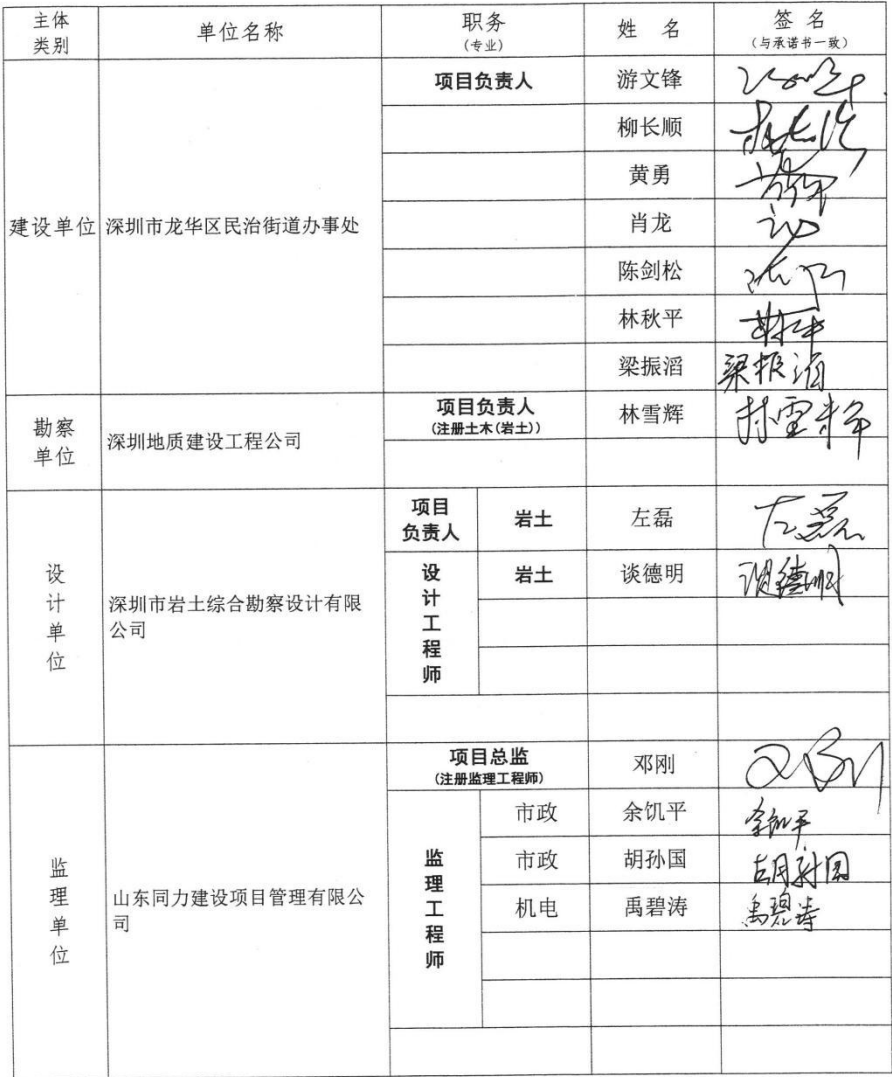 主体类别 单位名称 职务（专业） 姓 名 签 名（与承诺书一致）
建设单位 深圳市龙华区民治街道办事处 项目负责人 游文锋
柳长顺
黄勇
肖龙
陈剑松
林秋平
梁振滔 梁振滔
勘察单位 深圳地质建设工程公司 项目负责人（注册土木(岩土)） 林雪辉 林雪辉
设计单位 深圳市岩土综合勘察设计有限公司 项目负责人 岩土 左磊 左磊
设计工程师 岩土 谈德明 谈德明
监理单位 山东同力建设项目管理有限公司 项目总监（注册监理工程师） 邓刚 邓刚
监理工程师 市政 余饥平 余饥平
市政 胡孙国 胡孙国
机电 禹碧涛 禹碧涛